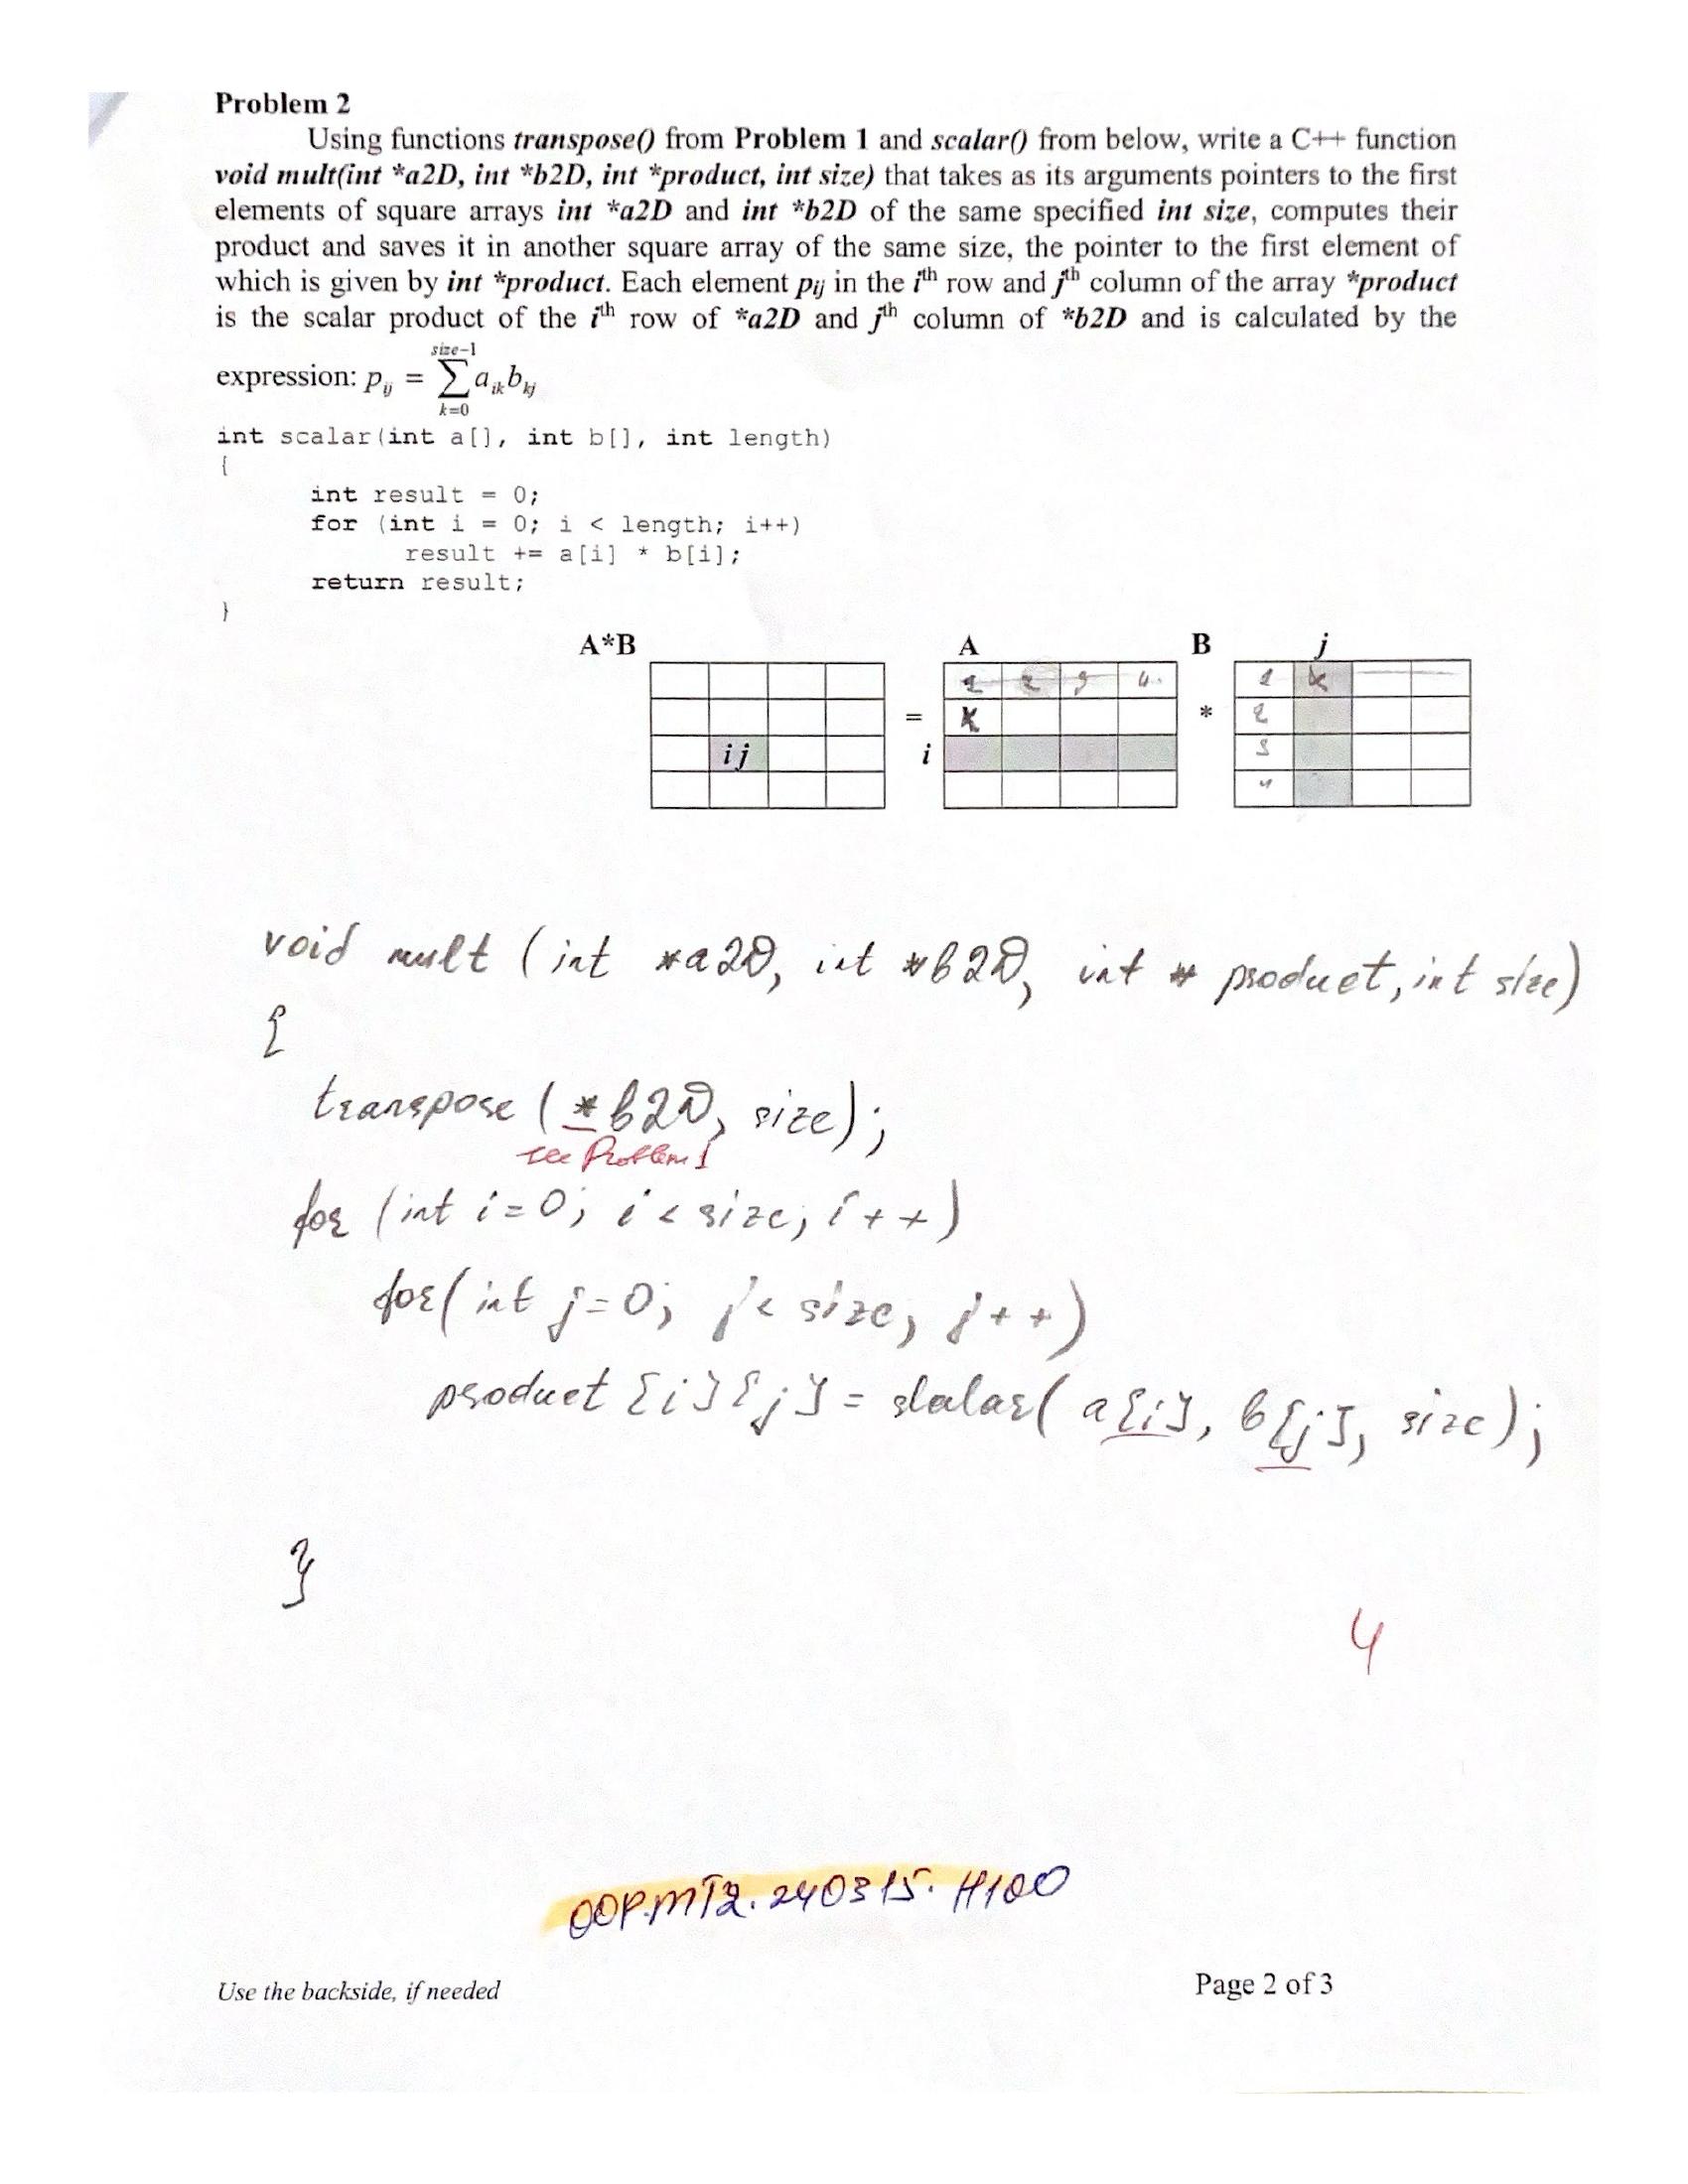 Problem 2
Using functions transpose() from Problem 1 and scalar() from below, write a C++ function
void mult(int *a2D, int *b2D, int *product, int size) that takes as its arguments pointers to the first
elements of square arrays int *a2D and int *b2D of the same specified int size, computes their
product and saves it in another square array of the same size, the pointer to the first element of
which is given by int *product. Each element pij in the ith row and jth column of the array *product
is the scalar product of the ith row of *a2D and jth column of *b2D and is calculated by the
size-1
expression: pij = ∑ aik bkj
k=0
int scalar(int a[], int b[], int length)
{
int result = 0;
for (int i = 0; i < length; i++)
result += a[i] * b[i];
return result;
}
A*B A B j
1 2 3 4 1 k
= k * 2
i j i 3
4
void mult (int *a2D, int *b2D, int * product, int size)
{
transpose (*b2D, size);
see Problem 1
for (int i=0; i < size; i++)
for(int j=0; j < size; j++)
product [i][j] = slalar( a[i], b[j], size);
}
4
OOP.MT2.240315.H100
Use the backside, if needed Page 2 of 3